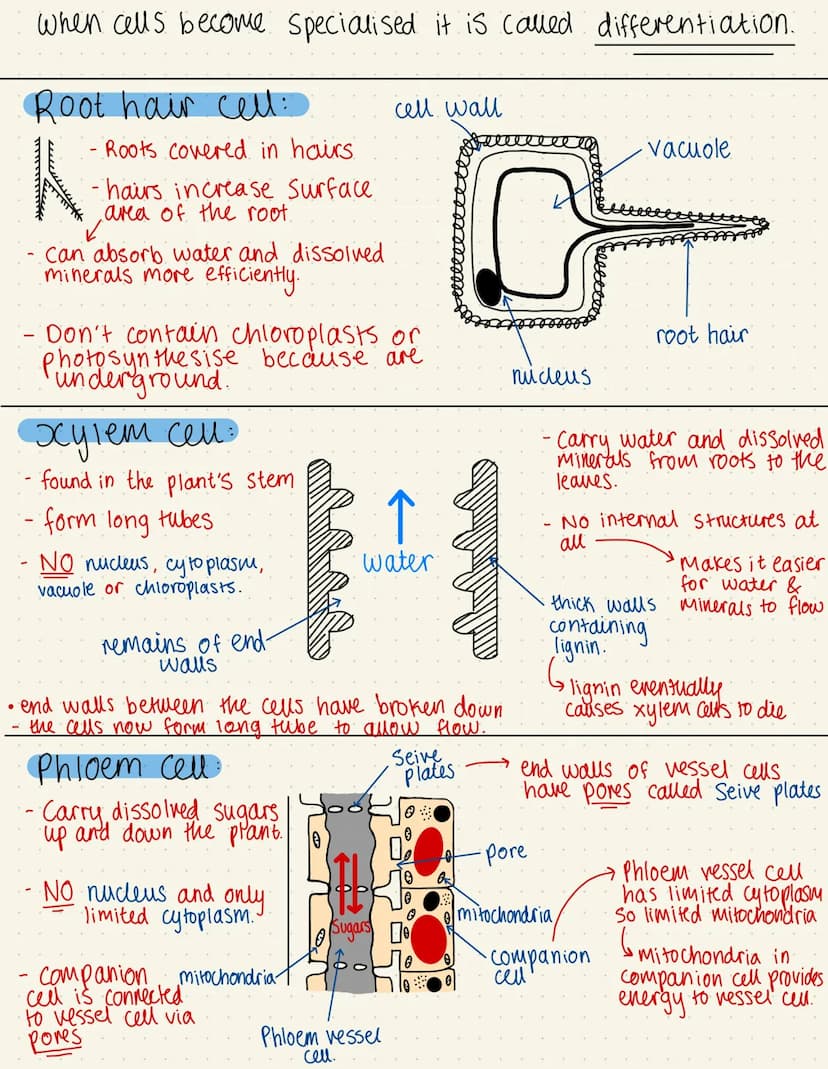 when cells become specialised it is called differentiation.
Root hair cell:
- Roots covered in hairs
- hairs increase surface
area of the root
- can absorb water and dissolved
minerals more efficiently.
- Don't contain chloroplasts or
photosynthesise because are
underground.
cell wall
vacuole
root hair
nucleus
xylem cell:
- found in the plant's stem
- form long tubes
- NO nucleus, cytoplasm,
vacuole or chloroplasts.
remains of end
walls
water
- Carry water and dissolved
minerals from roots to the
leaves.
- No internal structures at
all
Makes it easier
for water &
minerals to flow
thick walls
containing
lignin.
lignin eventually
causes xylem cells to die
• end walls between the cells have broken down
- the cells now form long tube to allow flow.
Phloem cell:
- Carry dissolved sugars
up and down the plant.
- NO nucleus and only
limited cytoplasm.
- companion
cell is connected
to vessel cell via
pores
Seive
plates
end walls of vessel cells
have pores called Seive plates
pore
mitochondria
companion
cell
sugars
mitochondria
Phloem vessel
cell.
Phloem vessel cell
has limited cytoplasm
so limited mitochondria
mitochondria in
companion cell provides
energy to vessel cell.